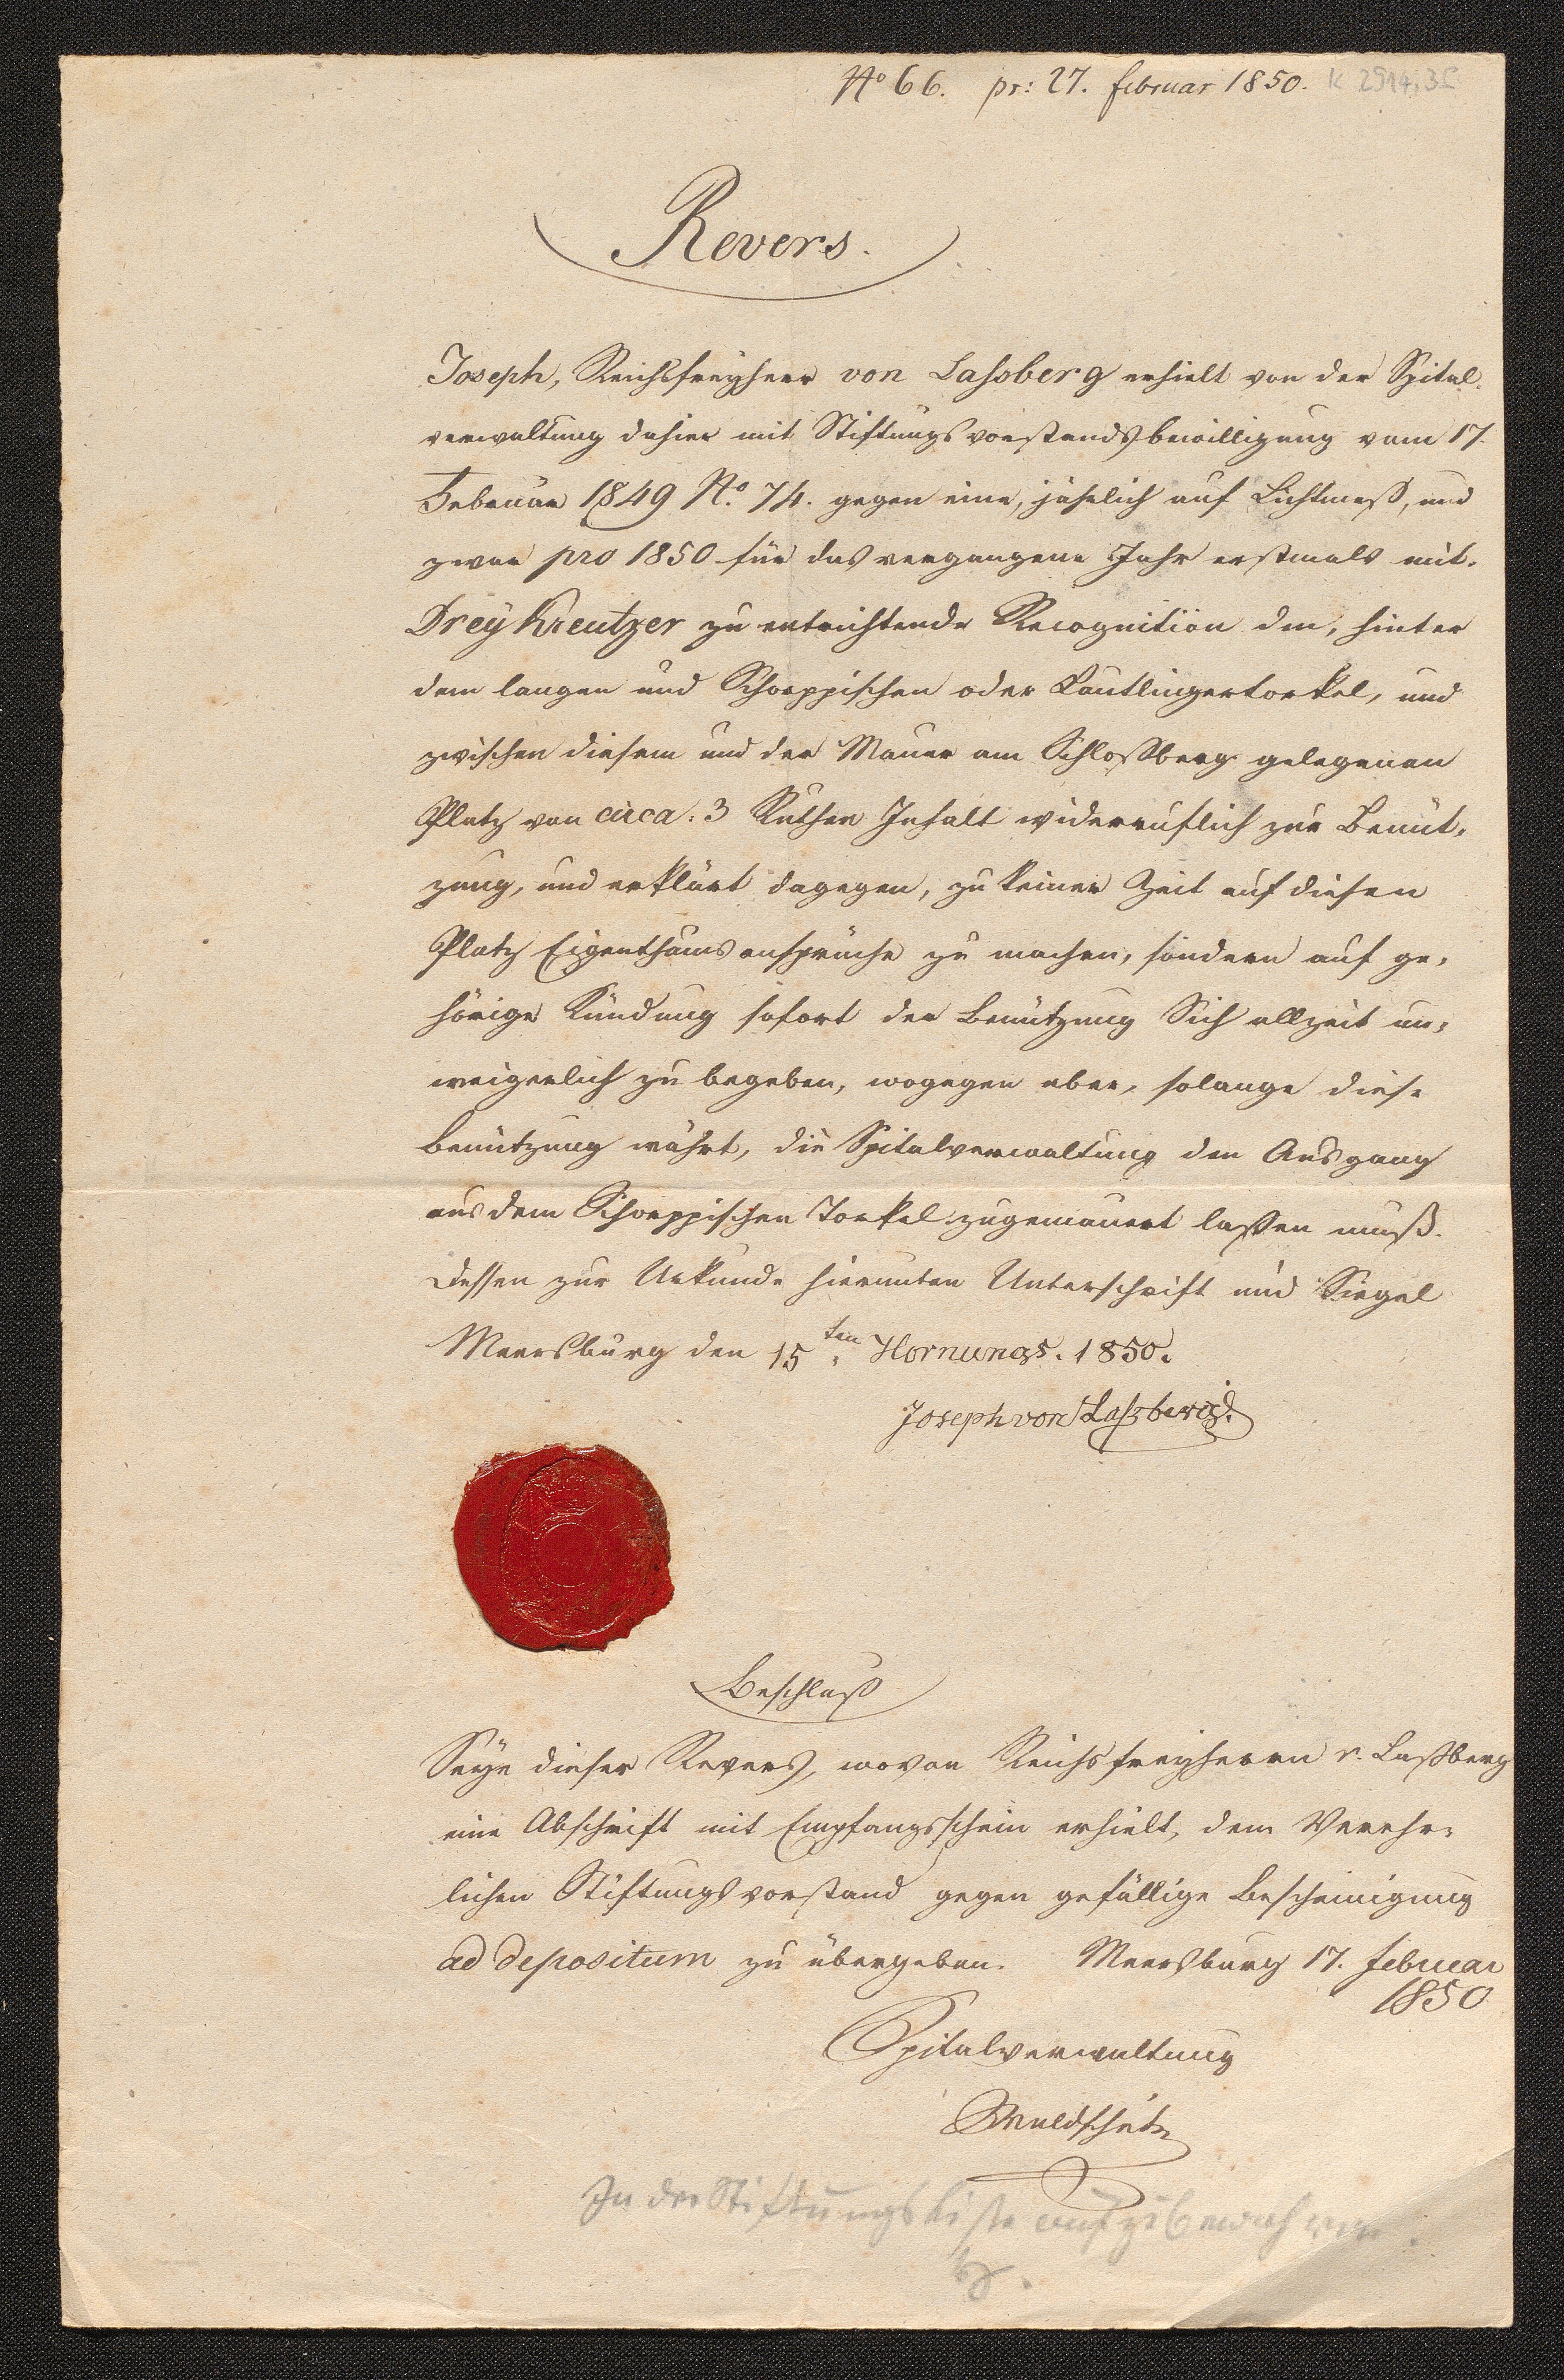 No 66. pr: 27. februar 1850. K 2914,3
Revers.
Joseph, Reichsfreyherr von Laßberg erhielt von der Spital-
verwaltung dahier mit Stiftungsvorstandsbewilligung vom 17.
Februar 1849 No. 74. gegen eine, jährlich auf Lichtmeß, und
zwar pro 1850 für das vergangene Jahr erstmals mit
Drey Kreutzer zu entrichtende Recognition den, hinter
dem langen und Schoeppischen oder Lautlingertorkel, und
zwischen diesem und der Mauer am Schloßberg gelegenen
Platz von circa. 3 Ruthen Inhalt widerruflich zur Benüt-
zung, und erklärt dagegen, zu keiner Zeit auf diesen
Platz Eigenthumsansprüche zu machen, sondern auf ge-
hörige Kündung sofort der Benützung Sich allzeit un-
weigerlich zu begeben, wogegen aber, solange diese
Benützung währt, die Spitalverwaltung den Ausgang
aus dem Schoeppischen Torkel zugemauert laßen muß.
Dessen zur Urkunde hierunten Unterschrift und Siegel
Meersburg den 15ten Hornungs. 1850.
Joseph von Laßberg.
Beschluß
Seye dieser Revers, wovon Reichsfreyherrn v. Laßberg
eine Abschrift mit Empfangsschein erhielt, dem Verehr-
lichen Stiftungsvorstand gegen gefällige Bescheinigung
ad depositum zu übergeben. Meersburg 17. februar
1850
Spitalverwaltung
Waldschütz
In der Stiftungskiste aufzubewahren.